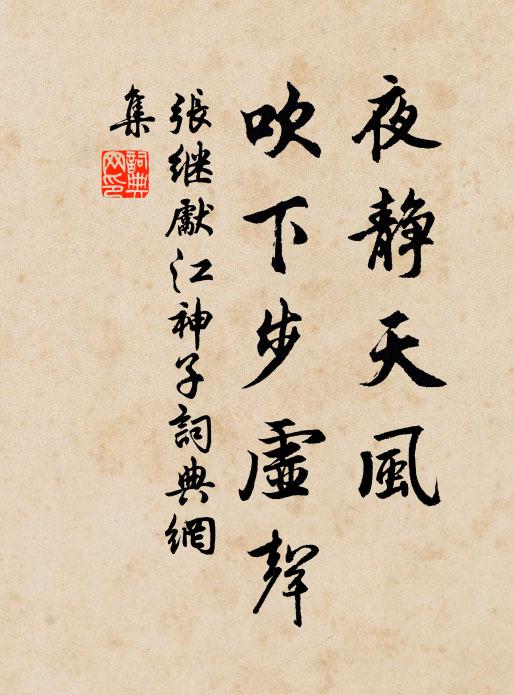 夜靜天風
吹下步虛聲
張継獻江神子詞典網
集
詞典
网印